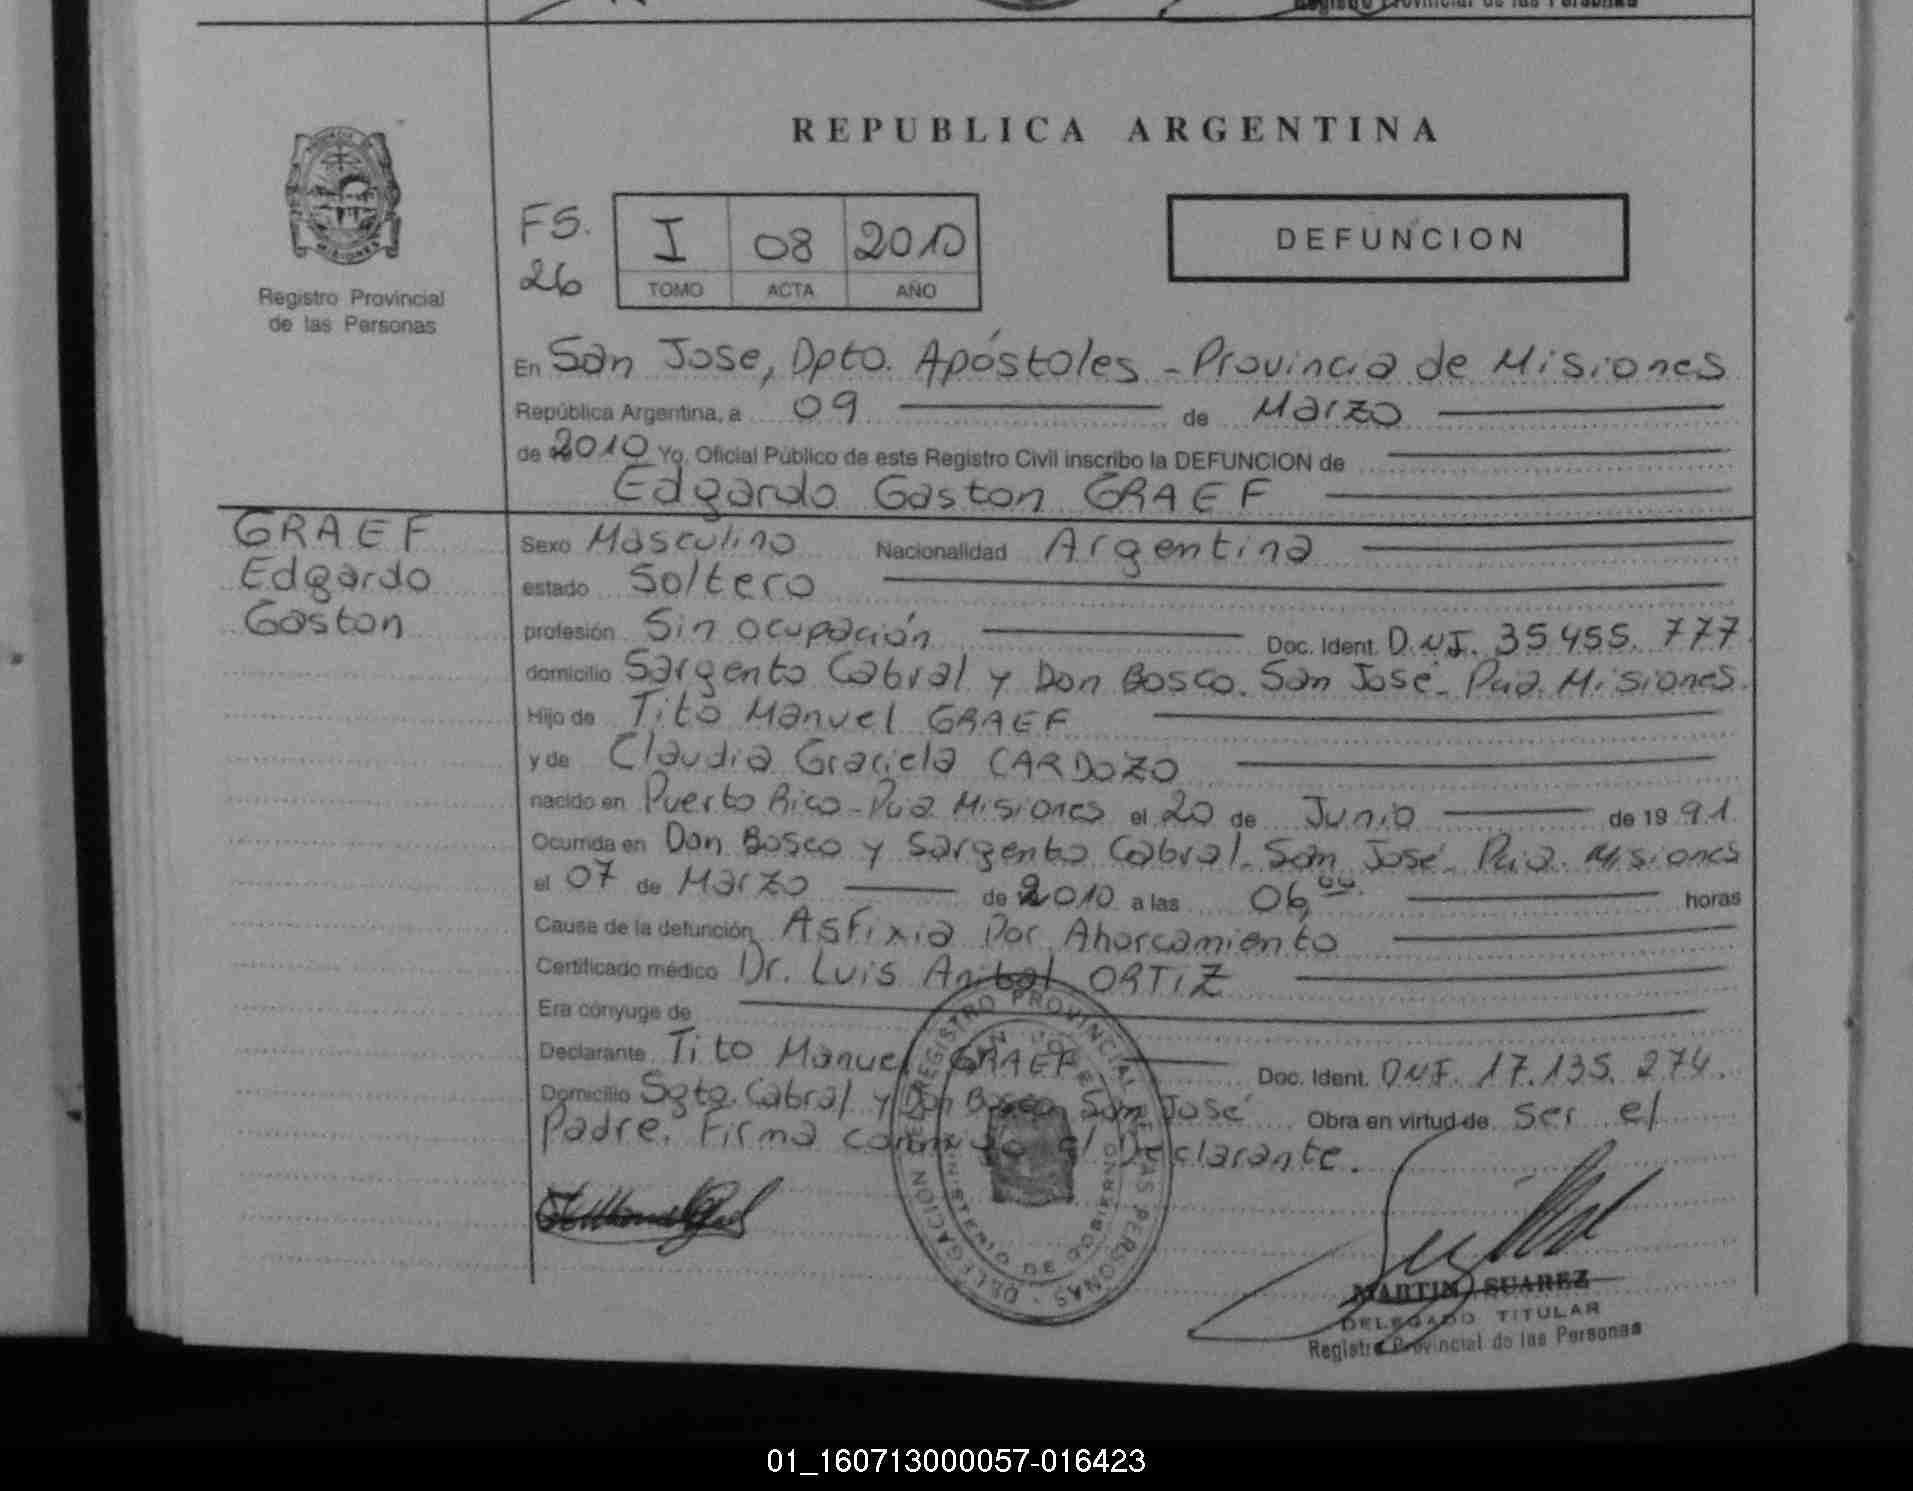 Registro Provincial de las Personas
REPUBLICA ARGENTINA
MISIONES
Registro Provincial
de las Personas
FS.
26
I 08 2010
TOMO ACTA AÑO
DEFUNCION
En San Jose, Dpto. Apóstoles - Provincia de Misiones
República Argentina, a 09 de Marzo
de 2010 Yo, Oficial Público de este Registro Civil inscribo la DEFUNCION de
Edgardo Gaston GRAEF
GRAEF
Edgardo
Gaston
Sexo Masculino Nacionalidad Argentina
estado Soltero
profesión Sin ocupación Doc. Ident. D.N.I. 35 455. 777.
domicilio Sargento Cabral y Don Bosco. San José - Pcia. Misiones.
Hijo de Tito Manuel GRAEF
y de Claudia Graciela CARDOZO
nacido en Puerto Rico - Pcia Misiones el 20 de Junio de 1991.
Ocurrida en Don Bosco y Sargento Cabral - San José - Pcia. Misiones
el 07 de Marzo de 2010 a las 06,00 horas
Causa de la defunción Asfixia Por Ahorcamiento
Certificado médico Dr. Luis Anibal ORTIZ
Era cónyuge de
Declarante Tito Manuel GRAEF Doc. Ident. DNI. 17.135. 274.
Domicilio Sgto. Cabral y Don Bosco San José Obra en virtud de Ser el
Padre. Firma conmigo el Declarante.
DELEGACION REGISTRO PROVINCIAL DE LAS PERSONAS
MINISTERIO DE GOBIERNO
MARTIN SUAREZ
DELEGADO TITULAR
Registro Provincial de las Personas
01_160713000057-016423